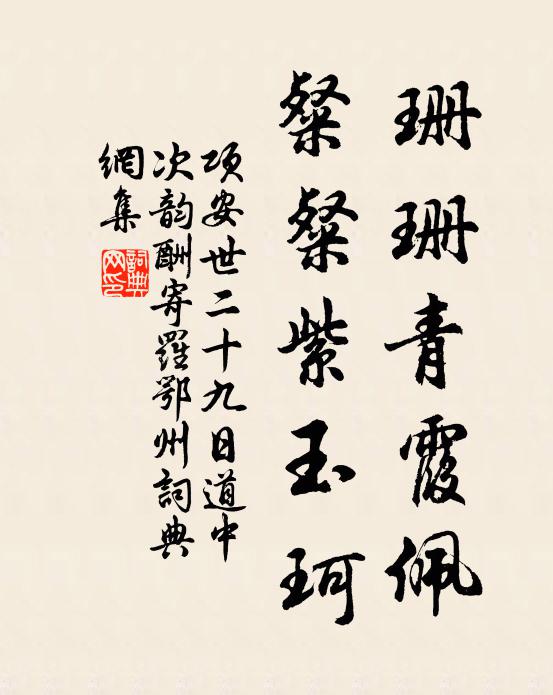 珊珊青霞佩
粲粲紫玉珂
項安世二十九日道中
次韵酬寄羅鄂州詞典
網集
詞典
网印